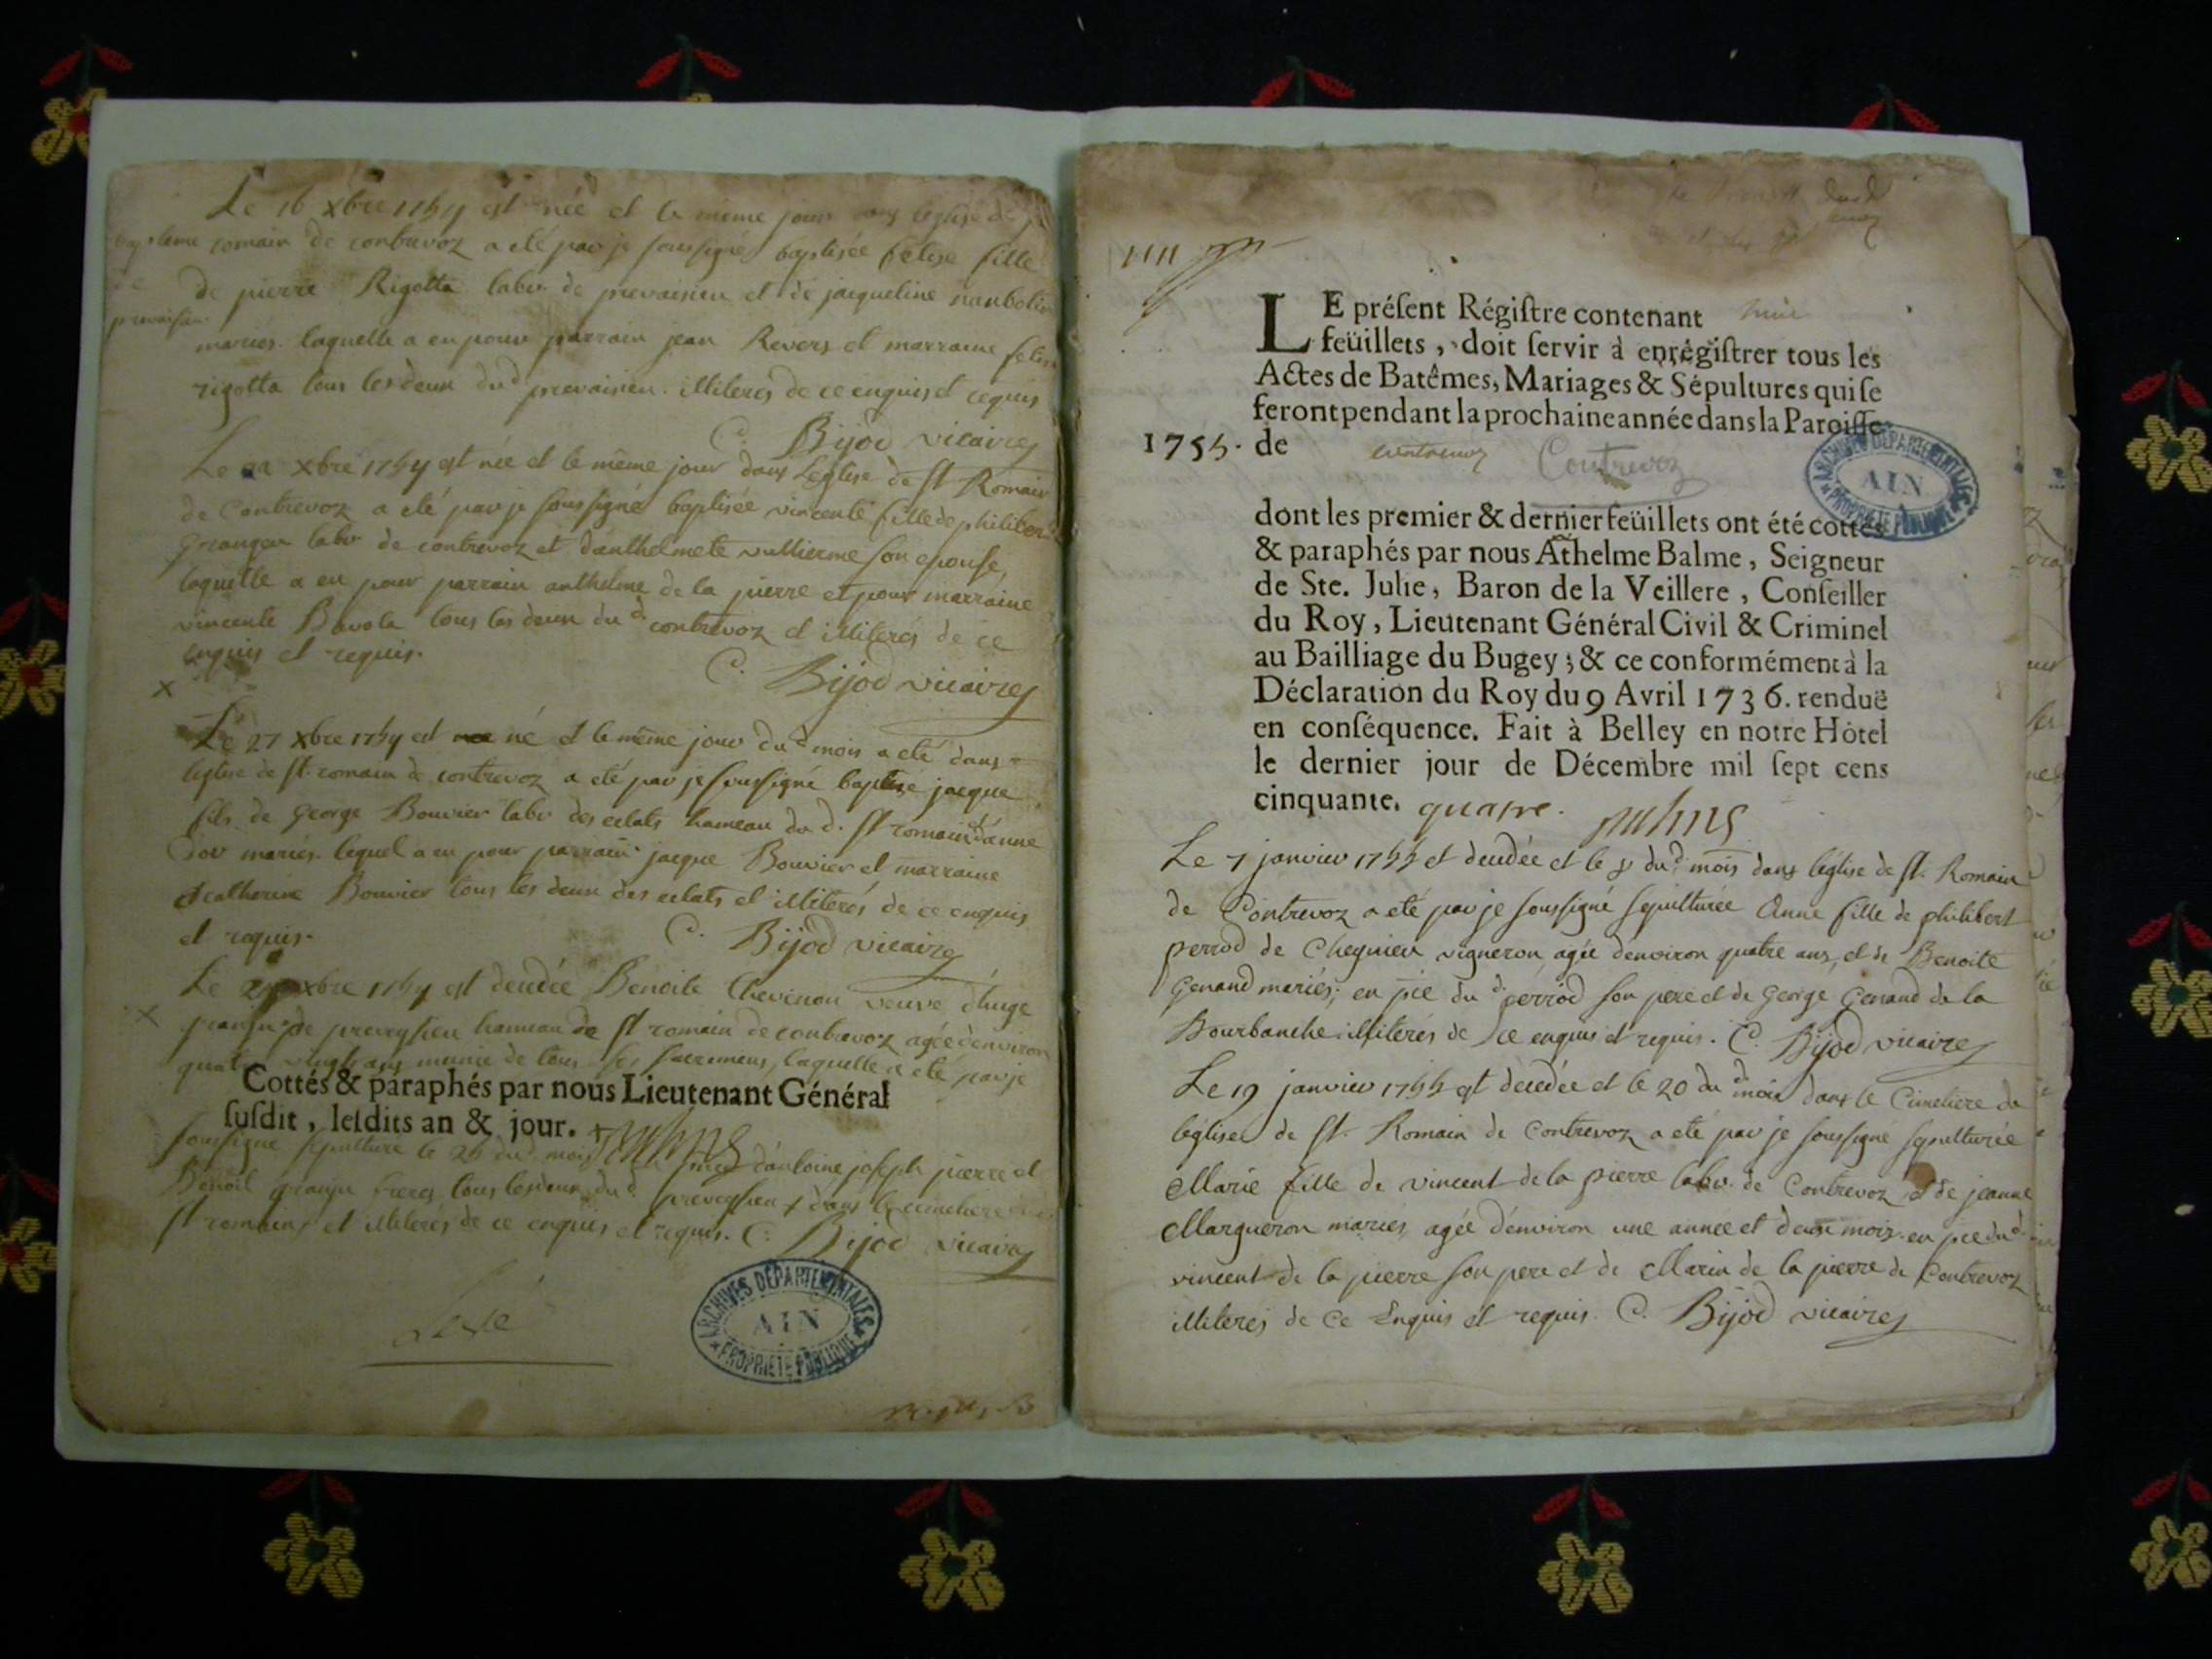 Le 16 xbre 1754 est née et le même jour dans léglise de st
romain de contrevoz a eté par je soussigné baptisée felise fille
bapteme
de
prevaisieu
de pierre Rigotta labr de prevaisieu et de jacqueline
mariés. laquelle a eu pour parrain jean Revers et marraine felise
rigotta tous les deux dud prevaisieu. illiterés de ce enquis et requis
C. Bijod vicaire
Le xbre 1754 est née et le même jour dans Léglise de st Romain
de Contrevoz a eté par je soussigné baptisée vincente fille de philibert
Grangeu labr de contrevoz et danthelmete vullierme son epouse,
laquelle a eu pour parrain anthelme de la pierre et pour marraine
vincente Bavola tous les deux dud contrevoz et illiterés de ce
enquis et requis.
C. Bijod vicaire
x
Le 27 xbre 1754 est né et le même jour dud mois a eté dans
léglise de st. romain de contrevoz a eté par je soussigné baptisé jacque
fils de George Bouvier labr des eclats hameau du d. st romain et d'anne
mariés. lequel a eu pour parrain jacque Bouvier et marraine
catherine Bouvier tous les deux des eclats et illiterés de ce enquis
et requis.
C. Bijod vicaire
Le xbre 1754 est decedée Benoite Chevinou veuve d'huge
x
de preveyssieu hameau de st romain de contrevoz agée denviron
quatre vingts ans munie de tous ses sacremens, laquelle a eté par je
Cottés & paraphés par nous Lieutenant Général
susdit, lesdits an & jour.
soussigné sepulturé le 28 dud mois en d'antoine joseph pierre et
Benoit freres tous les deux dud preveyssieu + dans le cimetiere
st romain + et illiterés de ce enquis et requis. C. Bijod vicaire
ARCHIVES DÉPARTEMENTALES
AIN
PROPRIÉTÉ PUBLIQUE
LE présent Régistre contenant huit
feüillets, doit servir à enrégistrer tous les
Actes de Batêmes, Mariages & Sépultures qui se
feront pendant la prochaine année dans la Paroisse
1755. de contrevoz Contrevoz
ARCHIVES DÉPARTEMENTALES
AIN
PROPRIÉTÉ PUBLIQUE
dont les premier & dernier feüillets ont été cottés
& paraphés par nous Athelme Balme, Seigneur
de Ste. Julie, Baron de la Veillere, Conseiller
du Roy, Lieutenant Général Civil & Criminel
au Bailliage du Bugey; & ce conformément à la
Déclaration du Roy du 9 Avril 1736. renduë
en conséquence. Fait à Belley en notre Hôtel
le dernier jour de Décembre mil sept cens
cinquante. quatre.
Le 7 janvier 1755 et decedée et le 8 dud mois dans léglise de st. Romain
de Contrevoz a eté par je soussigné sepulturée Anne fille de philibert
perrod de Cheynieu vigneron agée denviron quatre ans, et de Benoite
Genand mariés; en pce du d. perrod son pere et de George Genand de la
Bourbanche illiterés de ce enquis et requis. C. Bijod vicaire
Le 19 janvier 1755 est decedée et le 20 dud mois dans le Cimetiere de
léglise de st. Romain de Contrevoz a eté par je soussigné sepulturée
Marie fille de vincent de la pierre labr. de Contrevoz et de jeanne
Margueron mariés, agée d'environ une année et deux mois. en pce dud
vincent de la pierre son pere et de Marin de la pierre de Contrevoz
illiterés de ce Enquis et requis. C. Bijod vicaire